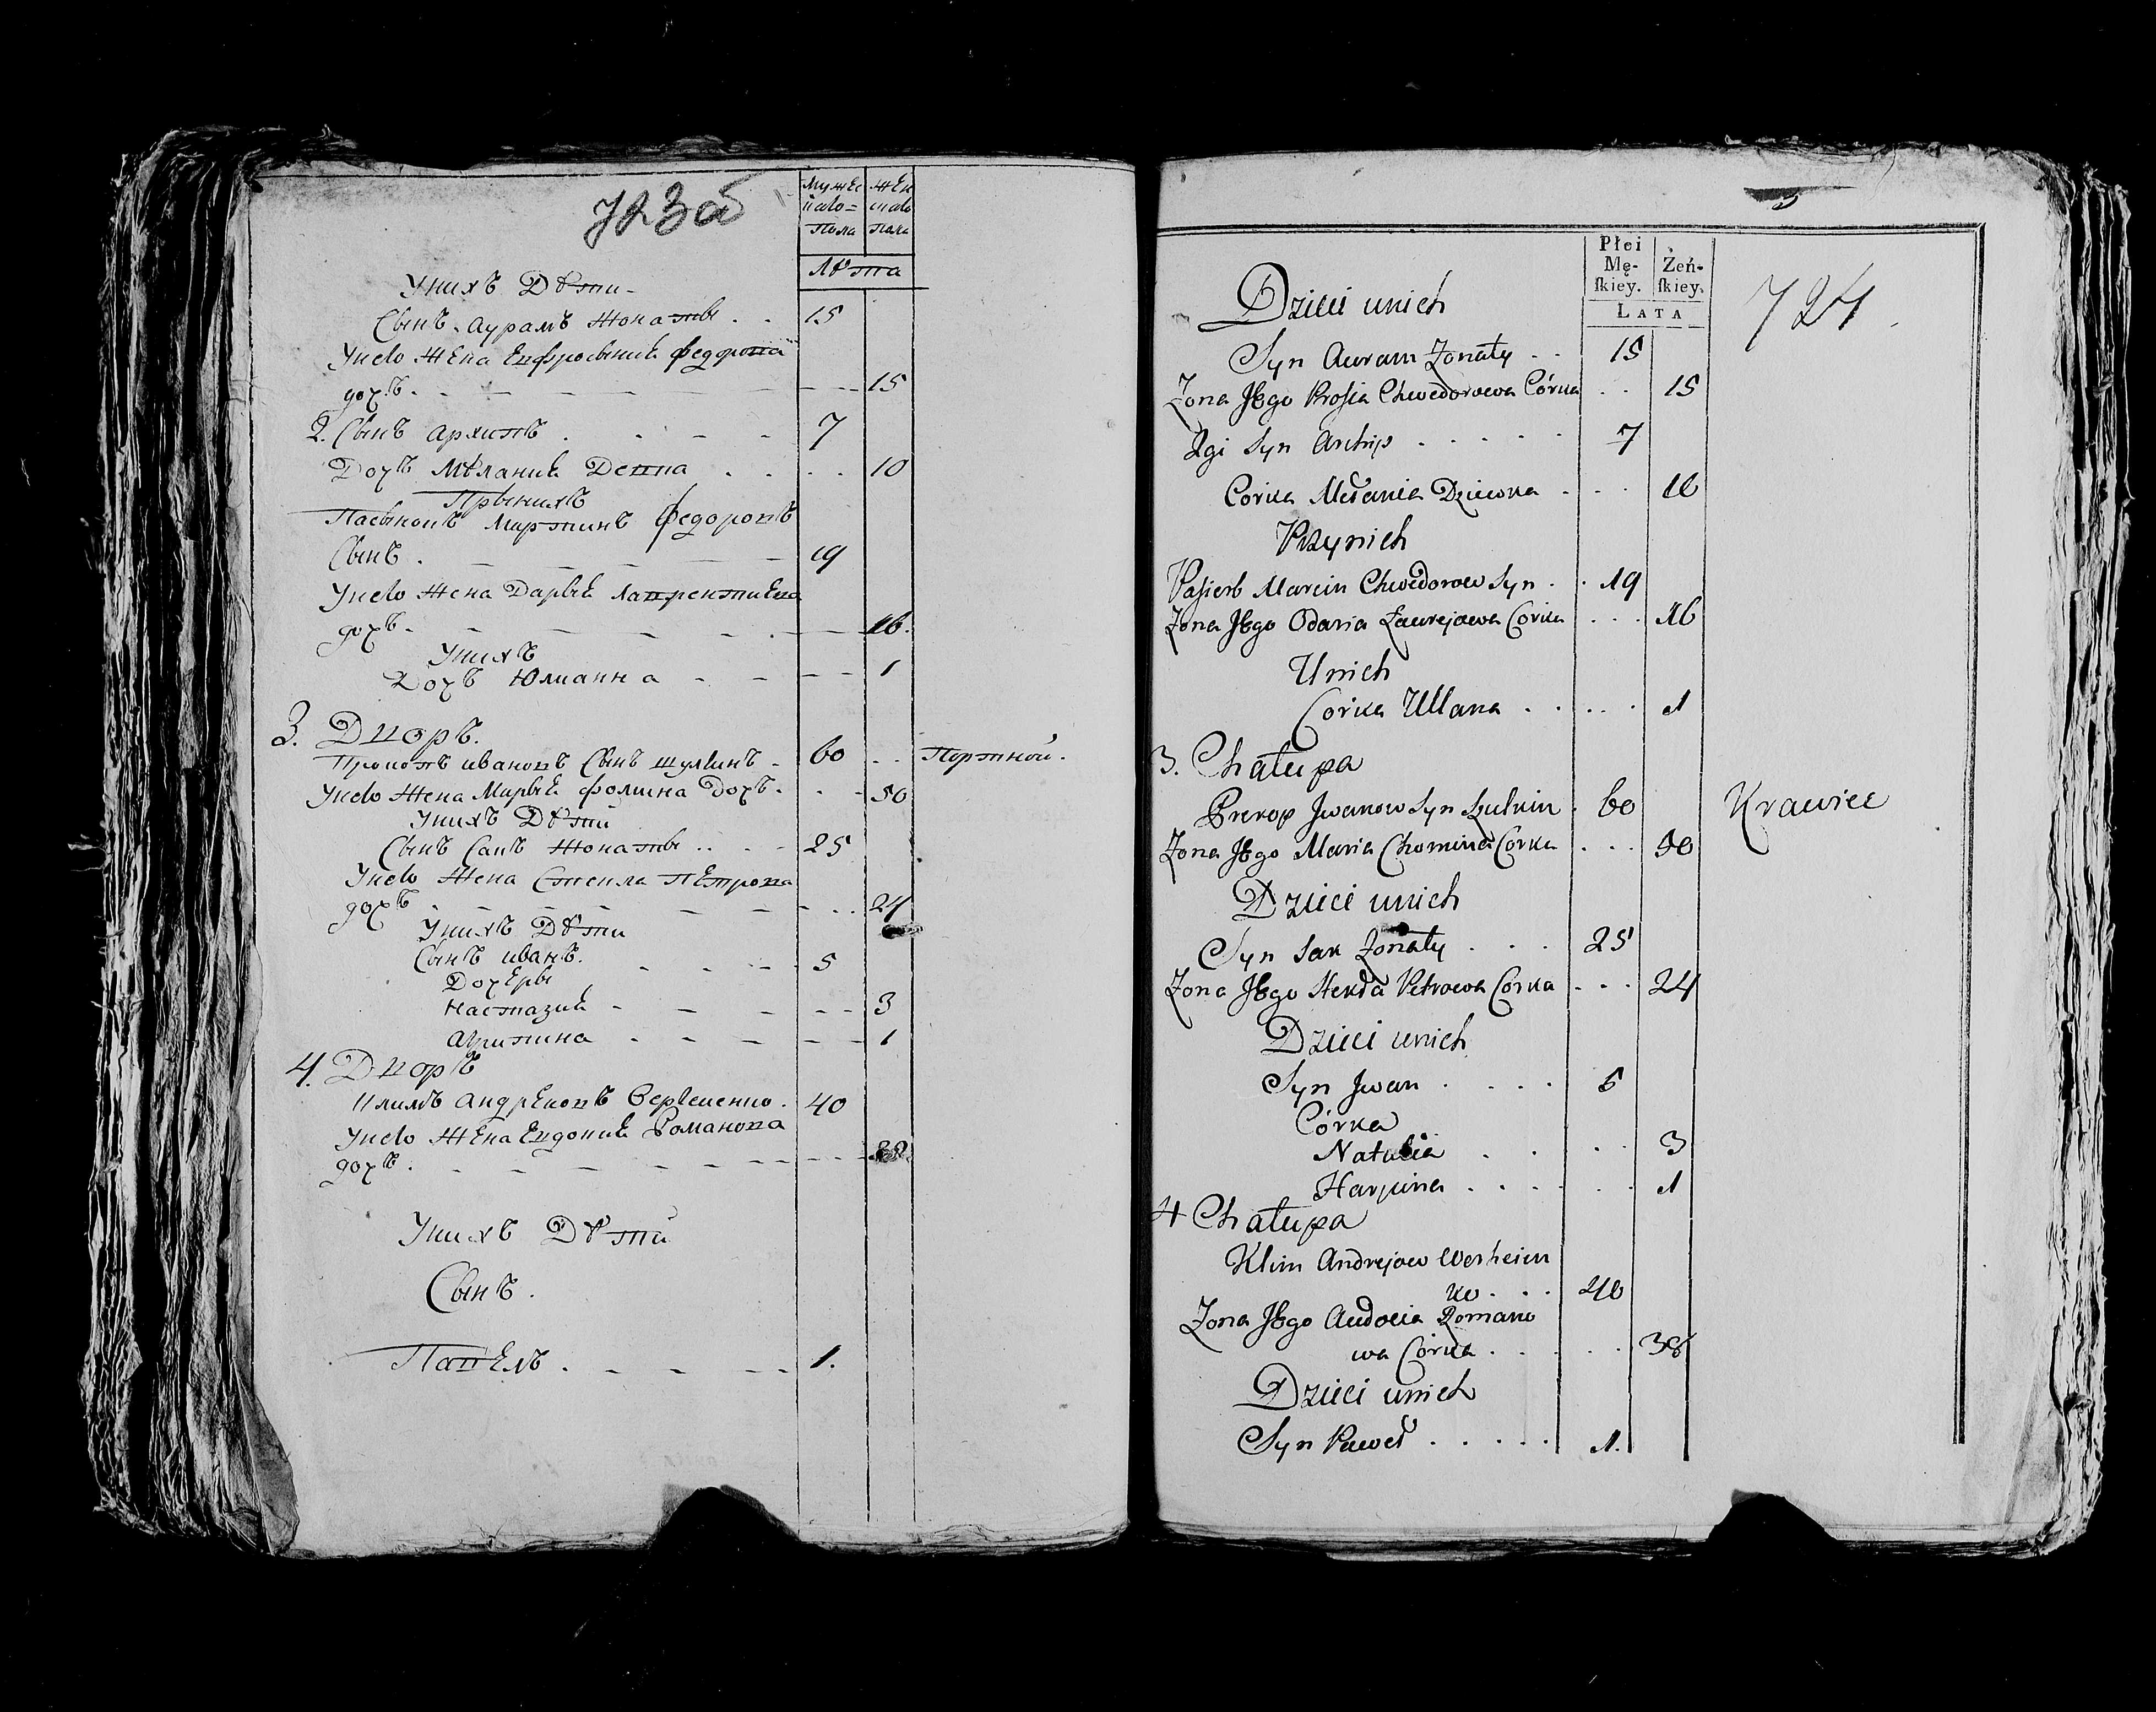 723а
Мужес
каго=
Пола
Жен
скаго
Пола
Лѣта
Унихъ Дѣти
Сынъ Аурамъ Жонаты . . 15
Унего Жена Еуфросыния Федорова
дочъ . 15
2. Сынъ Архипъ . 7
Дочъ Мѣлания Девка . . 10
Прынихъ
Пасынокъ Мартинъ Федоровъ
Сынъ . 19
Унего Жена Дарья Лаврентиева
дочъ 16.
Унихъ
Дочъ Юлианна 1
3. Дворъ.
Прокопъ Ивановъ Сынъ Шулкинъ 60 . . Портной.
Унего Жена Марья Фомина Дочъ . 50
Унихъ Дѣти
Сынъ Сакъ Жонаты . . 25
Унего Жена Стекла Пётрова
дочъ 24
Унихъ Дѣти
Сынъ Иванъ. 5
Дочеры
Настазия 3
Агрипина 1
4. Дворъ
Климъ Андреювъ Верѣменко . 40
Унего Жена Евдокия Романова
дочъ . 38
Унихъ Дѣти
Сынъ .
Павелъ . 1.
Płci
Mę-
ſkiey.
Żeń-
ſkiey.
LATA
724
Dzieci unich
Syn Auram Żonaty . . 15
Żona Jego Prosia Chwedorowa Córka . . 15
2gi Syn Archip . . . . . 7
Corka Mełania Dziewka . . . 10
Przynich
Pasierb Marcin Chwedorow Syn . . 19
Żona Jego Odaria Ławrejowa Corka . . . 16
Unich
Corka Ullana . . . . . 1
3. Chałupa
Prokop Jwanow Syn Szulkin . 60 Krawiec
Żona Jego Maria Chomina Corka . . . 50
Dzieci unich
Syn Sak Żonaty . . . 25
Żona Jego Stekła Petrowa Corka . . . 24
Dzieci unich
Syn Jwan . . . . 5
Córka
Natalia . . . . 3
Harpina . . . . . . 1
4 Chałupa
Klim Andrejow Werheien
ko . . . 40
Żona Jego Audocia Romano
wa Córka . . . . . 38
Dzieci unich
Syn Paweł . . . . . 1.